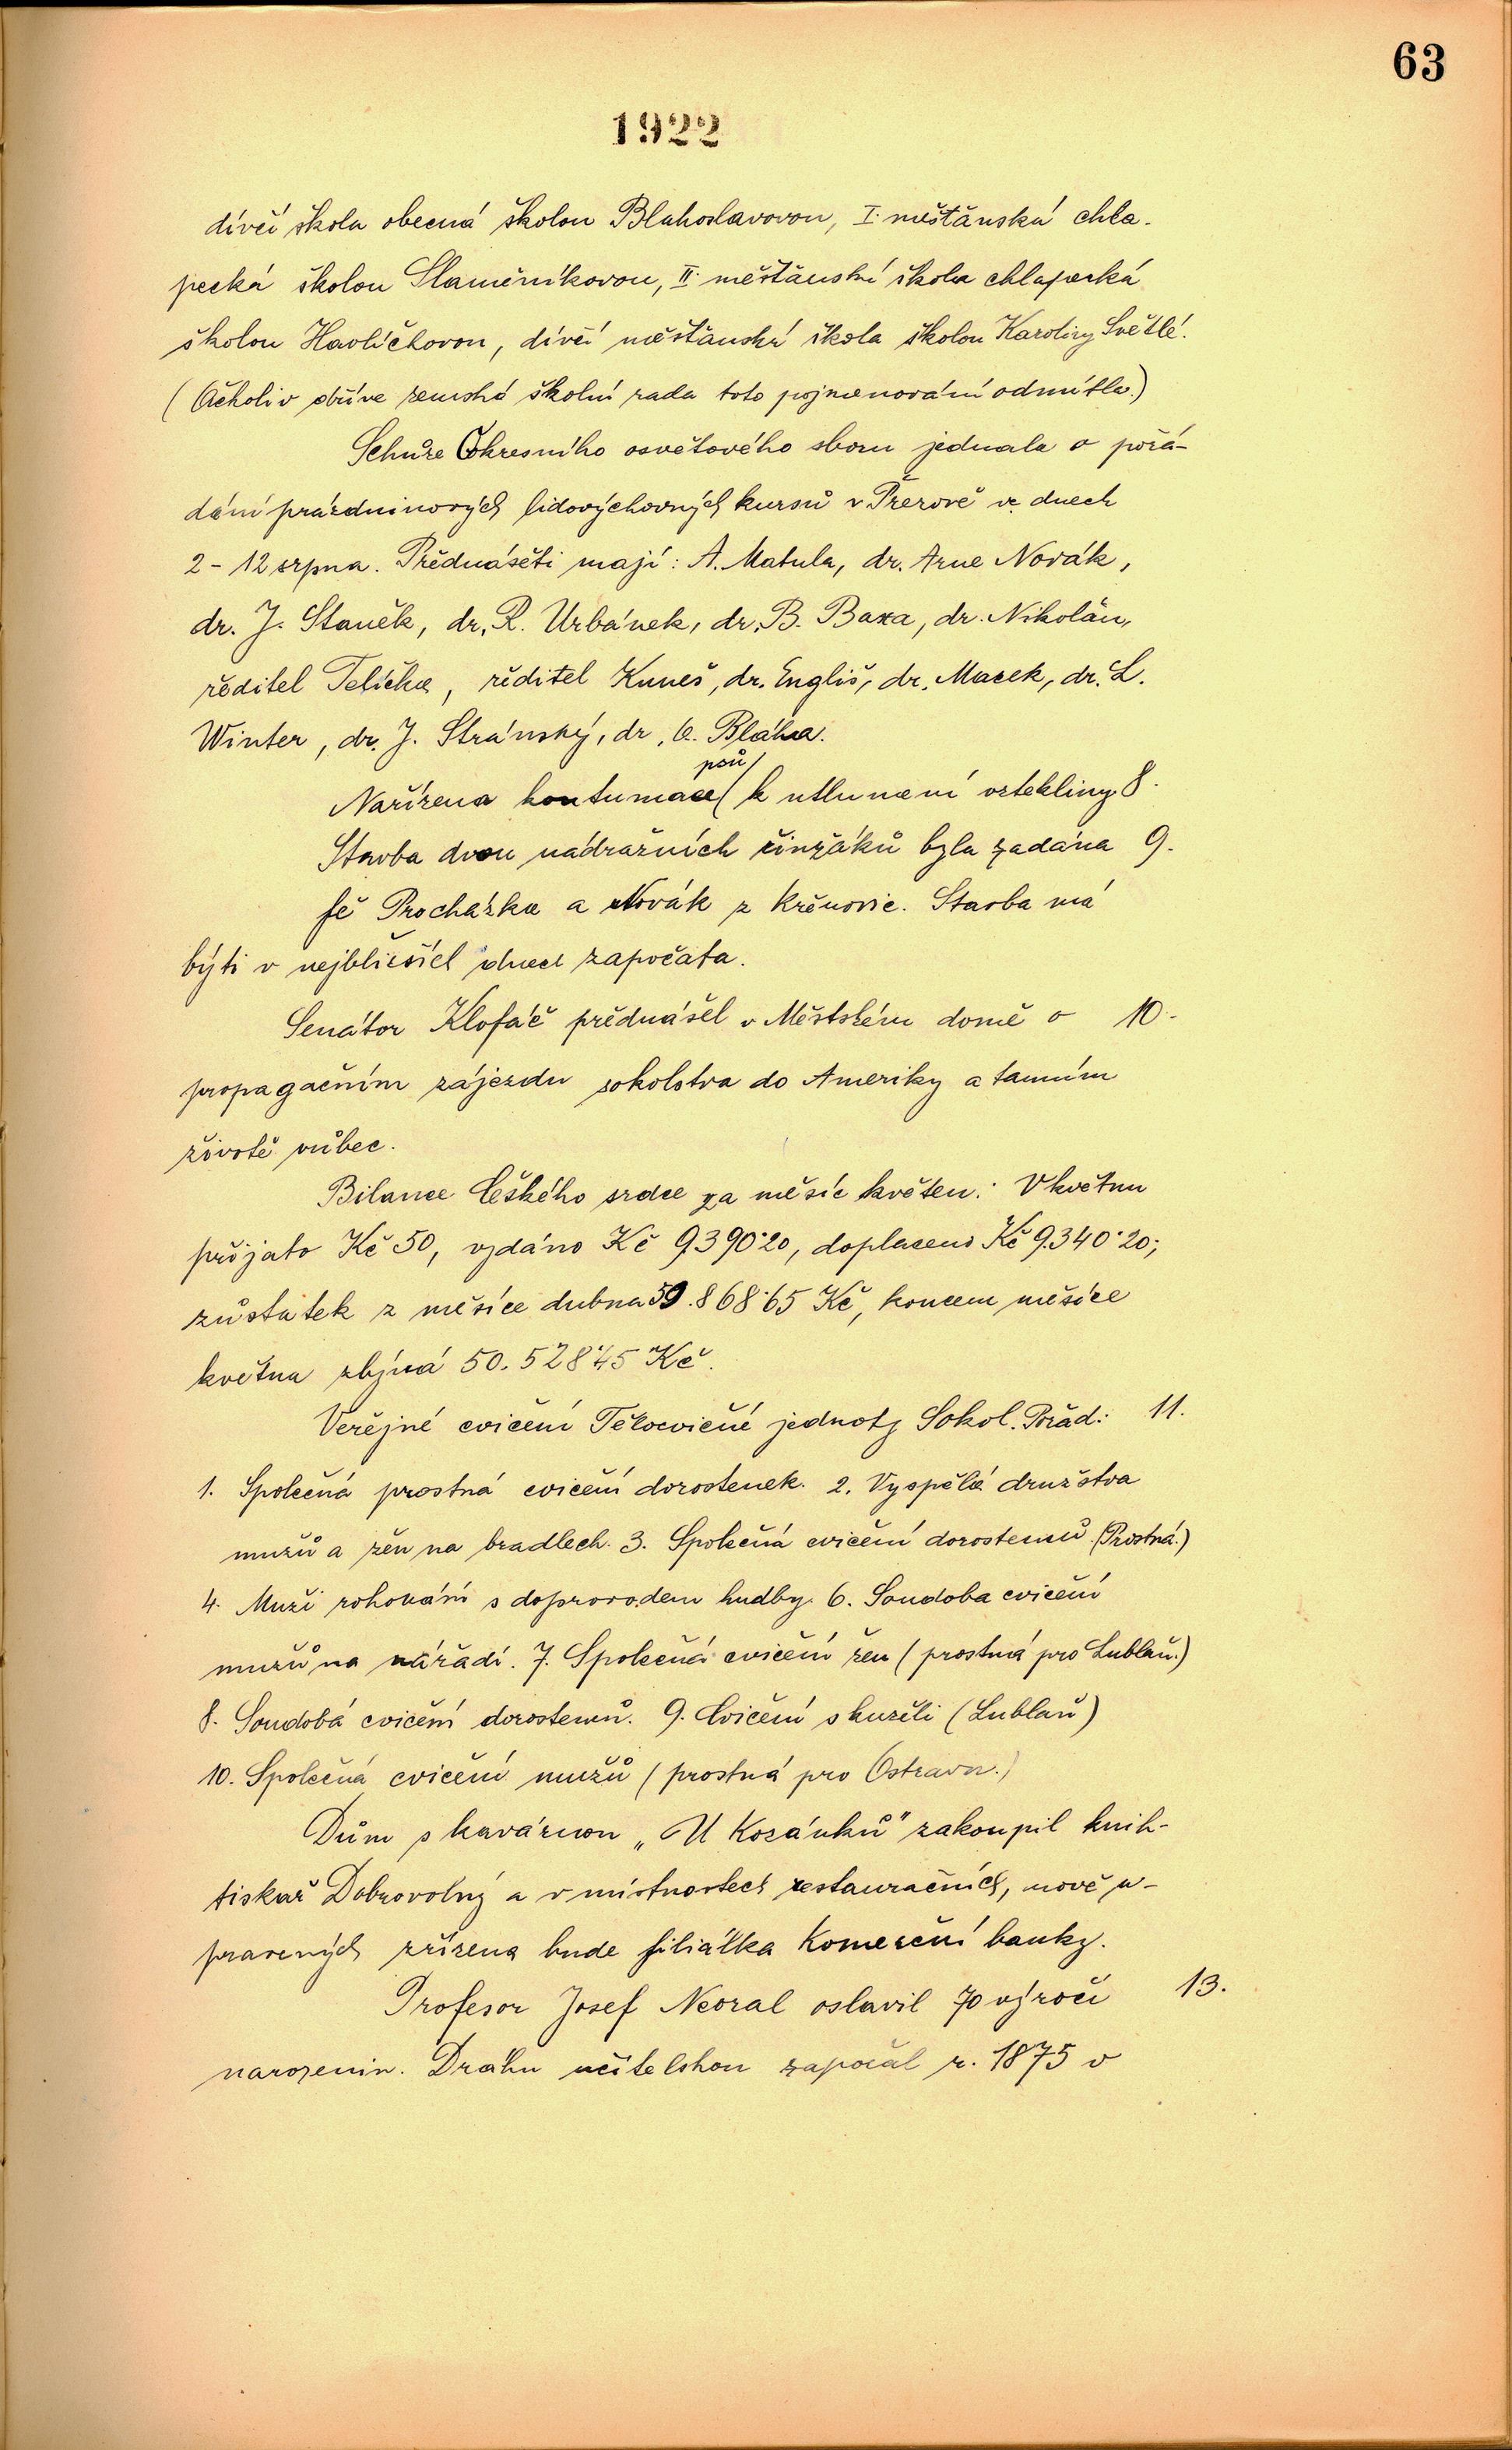 63
1922
dívčí škola obecná školou Blahoslavovou, I. měšťánská chla-
pecká školou Slaměníkovou, II. měšťánská škola chlapecká
školou Havlíčkovou, dívčí měšťánská škola školou Karoliny Světlé.
(Ačkoliv dříve zemská školní rada toto pojmenování odmítla.)
Schůze Okresního osvětového sboru jednala o pořá-
dání prázdninových lidovýchovných kursů v Přerově ve dnech
2 - 12 srpna. Přednášeti mají: A. Matula, dr. Arne Novák,
dr. J. Staněk, dr. R. Urbánek, dr. B. Baxa, dr. Nikolău,
ředitel Telička, ředitel Kuneš, dr. Engliš, dr. Macek, dr. L.
Winter, dr. J. Stránský, dr. A. Bláha.
Nařízena kontumace psů k utlumení vztekliny. 8.
Stavba dvou nádražních činžáků byla zadána 9.
fě Procházka a Novák z Křenovic. Stavba má
býti v nejbližších dnech započata.
Senátor Klofáč přednášel v Městském domě o 10.
propagačním zájezdu sokolstva do Ameriky a tamním
životě vůbec.
Bilance Českého srdce za měsíc květen: V květnu
přijato Kč 50, vydáno Kč 9390·20, doplaceno Kč 9.340·20;
zůstatek z měsíce dubna 59.868·65 Kč, koncem měsíce
května zbývá 50.528·45 Kč.
Veřejné cvičení Tělocvičné jednoty Sokol. Pořad: 11.
1. Společná prostná cvičení dorostenek. 2. Vyspělá družstva
mužů a žen na bradlech. 3. Společná cvičení dorostenců (Prostná.)
4. Muži rohování s doprovodem hudby. 6. Soudoba cvičení
mužů na nářadí. 7. Společná cvičení žen (prostná pro Lublaň.)
8. Soudobá cvičení dorostenců. 9. Cvičení s kuželi (Lublaň)
10. Společná cvičení mužů (prostná pro Ostravu.)
Dům s kavárnou „U Kozánků" zakoupil knih-
tiskař Dobrovolný a v místnostech restauračních, nově u-
pravených zřízena bude filiálka Komerční banky.
Profesor Josef Neoral oslavil 70 výročí 13.
narozenin. Dráhu učitelskou započal r. 1875 v